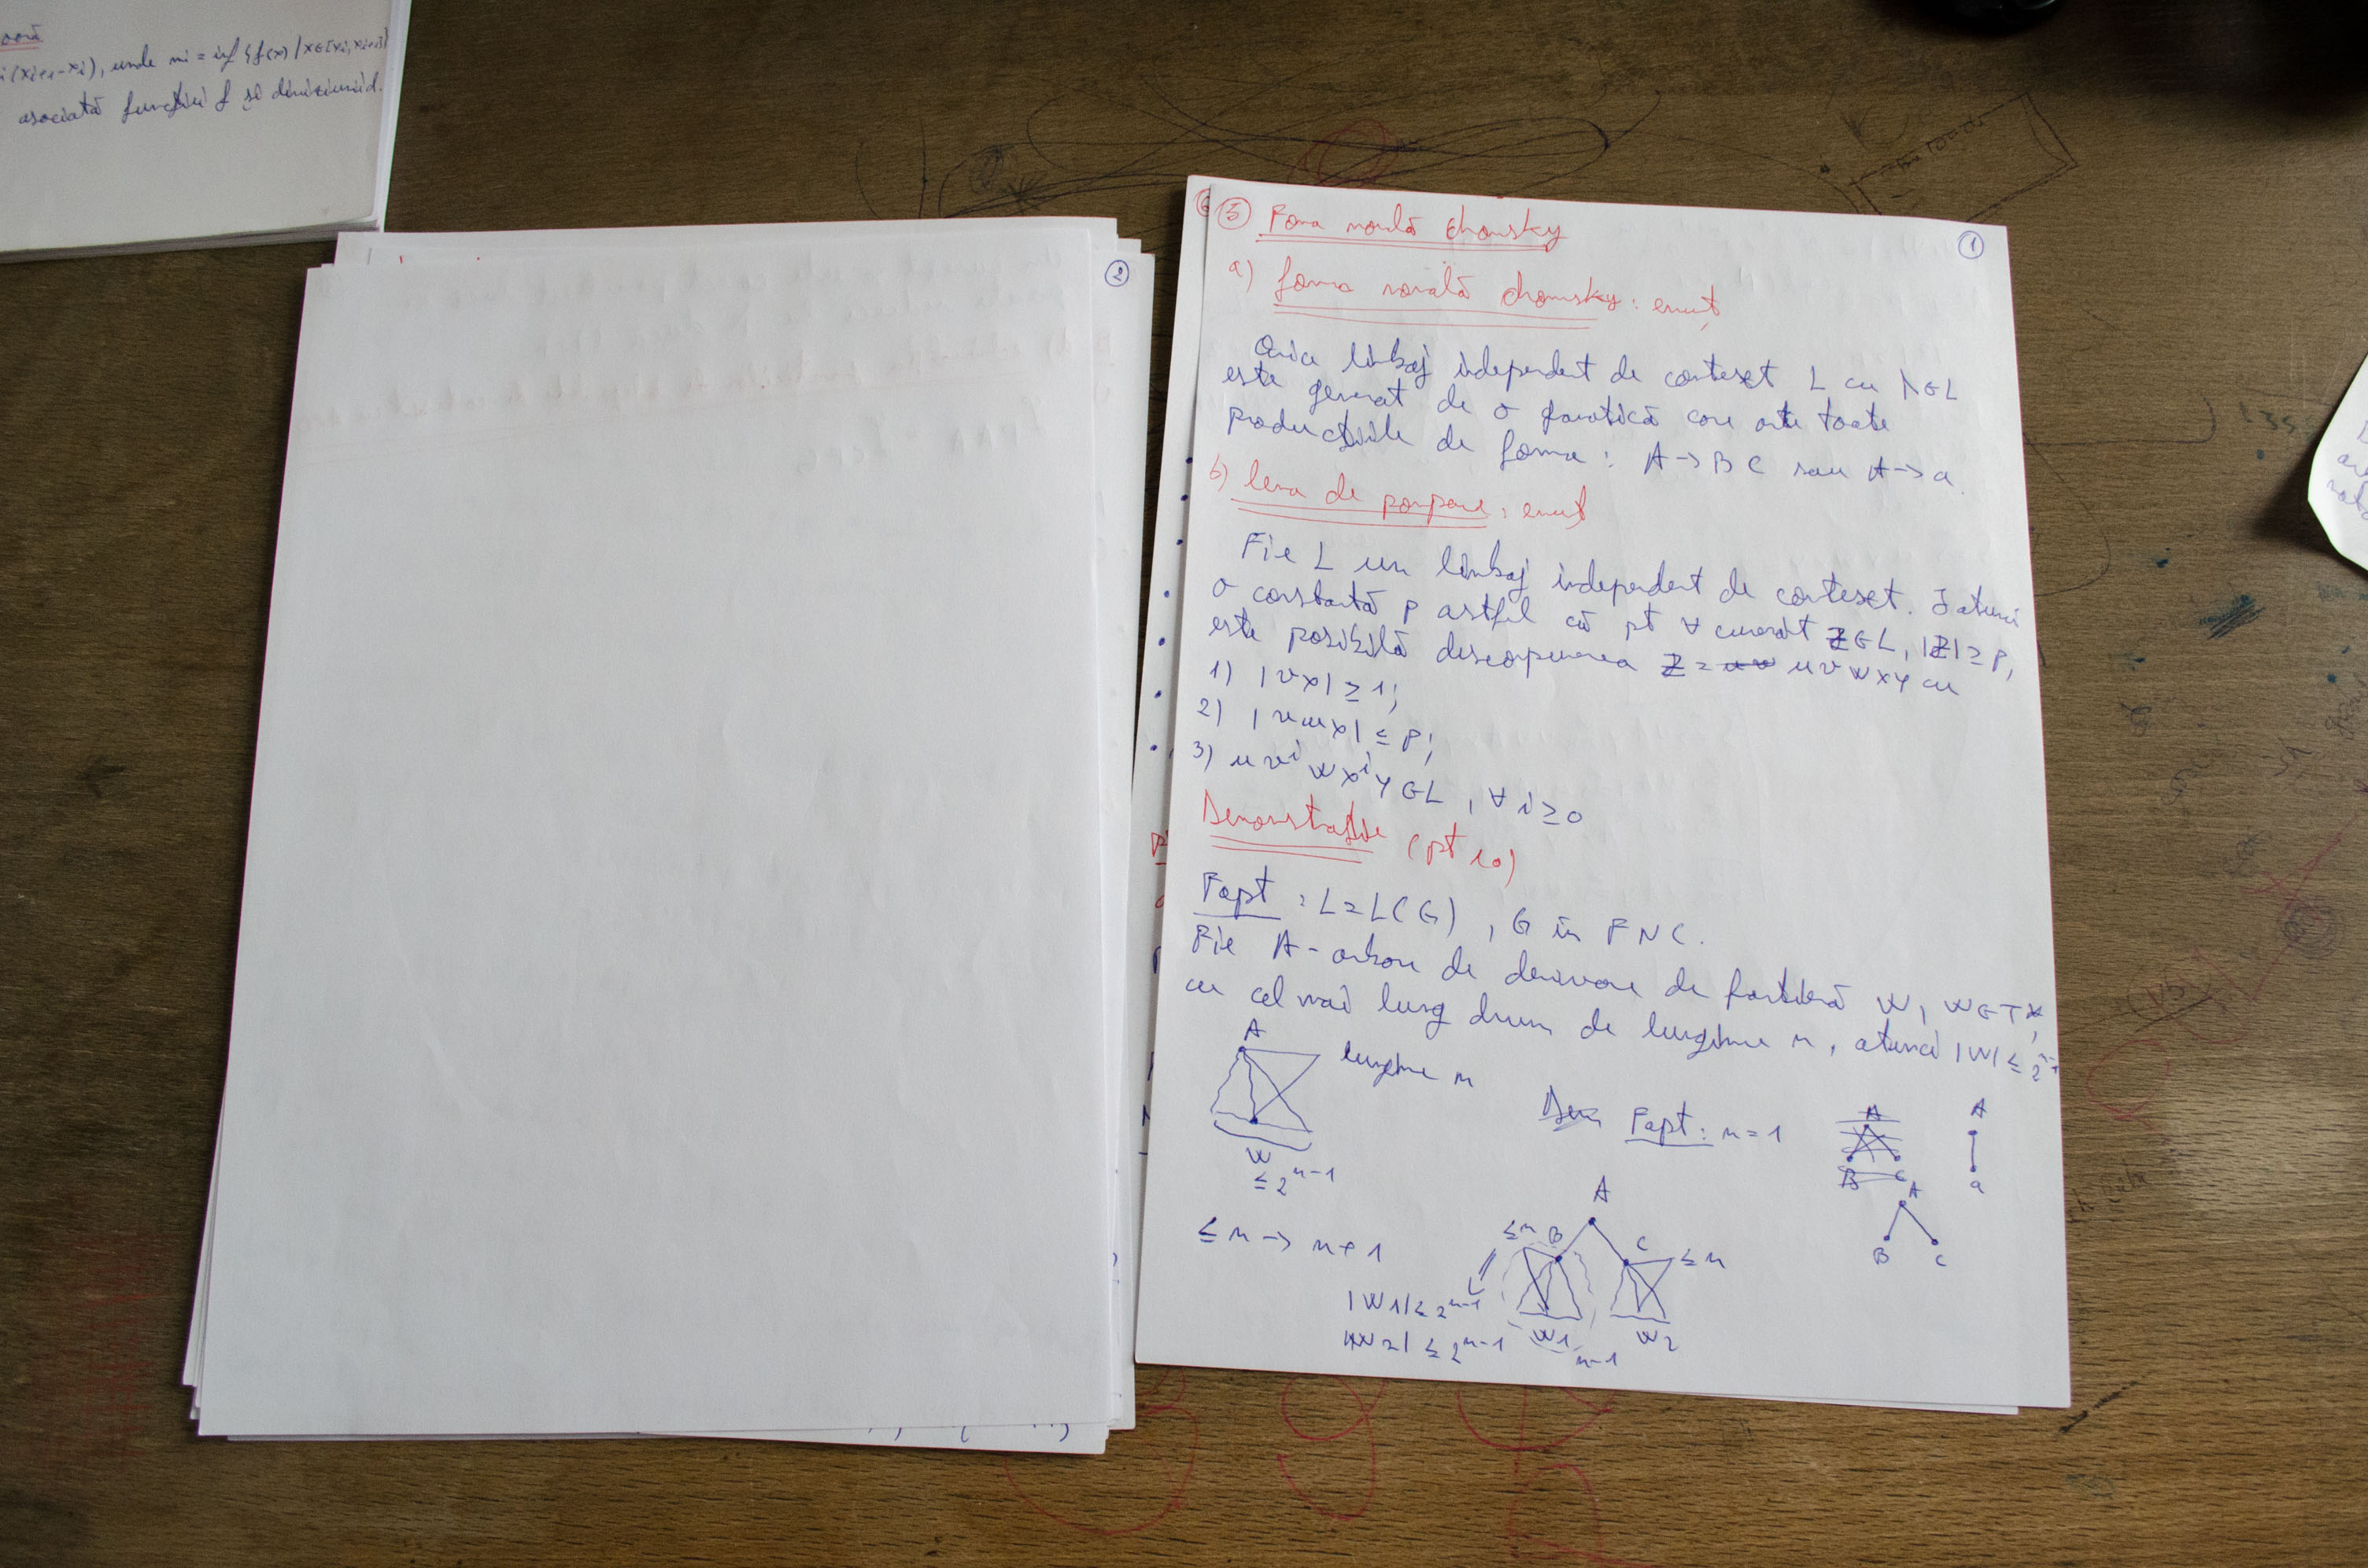 mi = inf {f(x) / x∈[xi, xi+1]}
asociată funcției f și diviziunii d.
2
5 Foma nomlă chomsky
1
a) foma nomală chomsky: enunț
Orice limbaj independent de context L cu λ∈L
este generat de o
producțiile de foma: A → BC sau A → a.
b) lema de pompare: enunț
Fie L un limbaj independent de context. Ǝ atunci
o constantă p astfel că pt ∀ cuvânt Z∈L, |Z| ≥ p,
este posibilă descompunerea Z = uvwxy cu
1) |vx| ≥ 1;
2) |vwx| ≤ p;
3) uvⁱwxⁱy ∈ L, ∀ i ≥ 0
Demonstrație (pt 10)
Fapt: L = L(G), G în FNC.
Fie A - arbore de derivare de frontieră w, w∈T*,
cu cel mai lung drum de lungime n, atunci |w| ≤ 2ⁿ⁻¹
A
lungime n
w
≤ 2ⁿ⁻¹
Dem Fapt: n = 1
A
B C
A
a
A
B C
≤ n → n+1
A
≤n B
C ≤ n
|w1| ≤ 2ⁿ⁻¹
|w2| ≤ 2ⁿ⁻¹
w1
w2
n-1